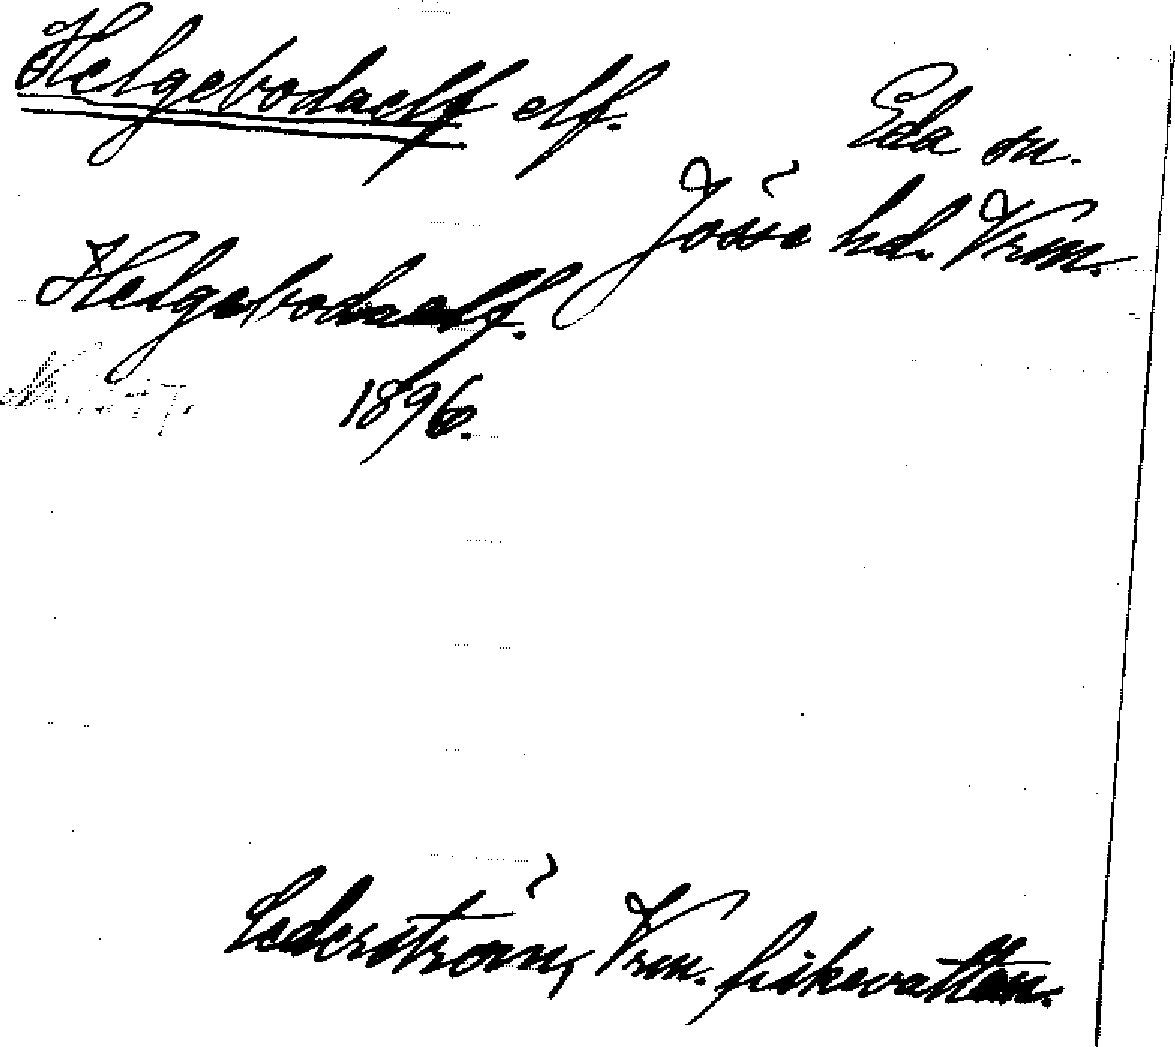 Helgebodaelf elf.
Eda sn.
Jösse hd. Vrm.
Helgebodaelf.
1896.
Cederström, Vrm. fiskevatten.